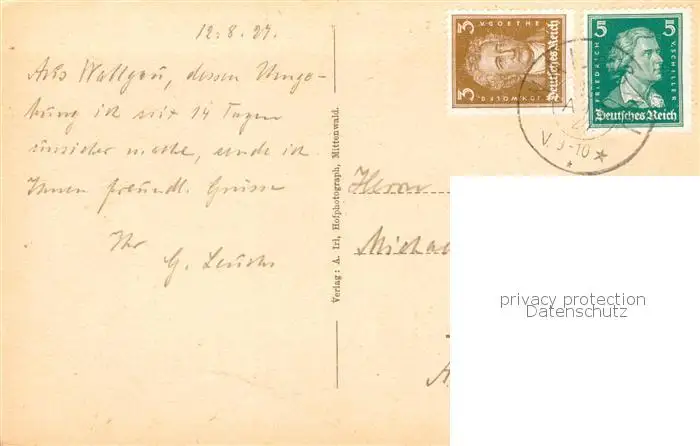 12.8.27.
Aus Wallgau, dessen Umge-
bung ich seit 14 Tagen
unsicher mache, sende ich
Ihnen freundl. Grüsse
Ihr
G. Leuchs
Verlag: A. Irl, Hofphotograph, Mittenwald.
3 V. GOETHE
JOH. WOLFG.
3
Deutsches Reich
5 5
FRIEDRICH V. SCHILLER
Deutsches Reich
V. 9-10
Herrn
Michae
privacy protection
Datenschutz